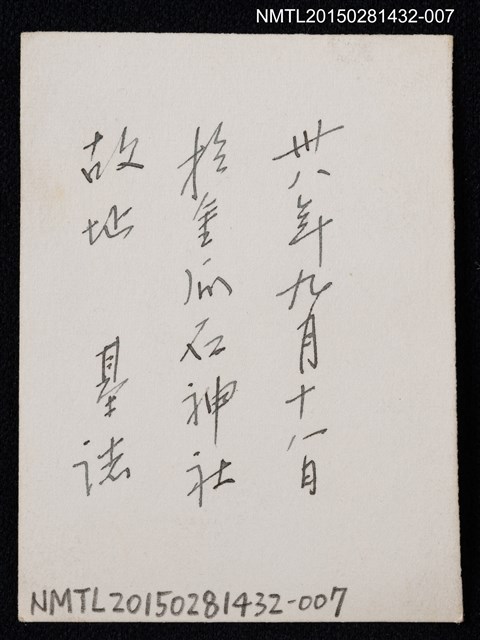 NMTL20150281432-007
卅八年九月十八日
於金瓜石神社
故址 基誌
NMTL20150281432-007